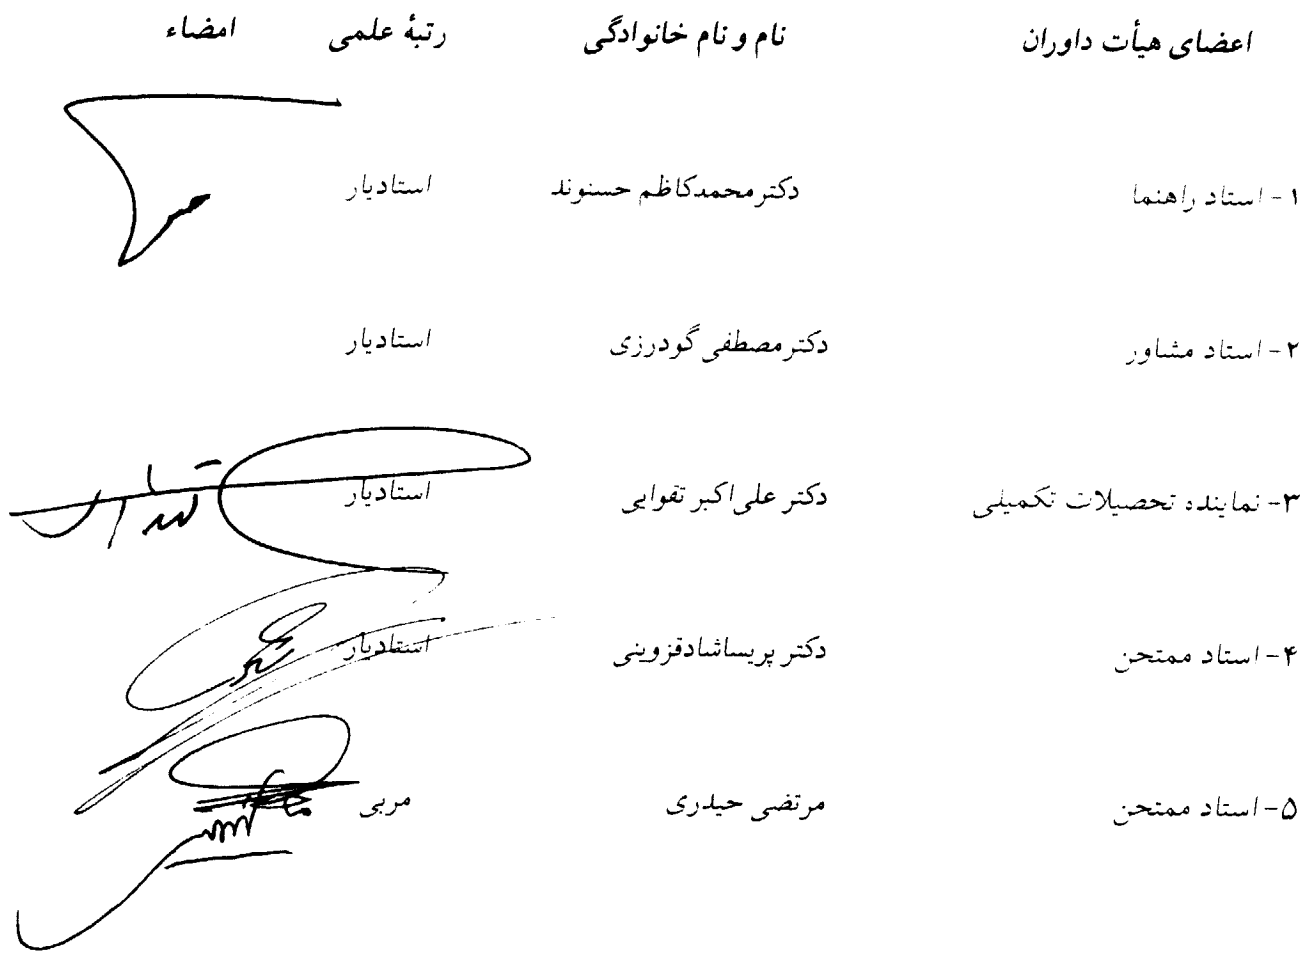 اعضای هیأت داوران نام و نام خانوادگی رتبهٔ علمی امضاء
۱- استاد راهنما دکتر محمدکاظم حسنوند استادیار
۲- استاد مشاور دکتر مصطفی گودرزی استادیار
۳- نماینده تحصیلات تکمیلی دکتر علی‌اکبر تقوایی استادیار
۴- استاد ممتحن دکتر پریساشادقزوینی استادیار
۵- استاد ممتحن مرتضی حیدری مربی